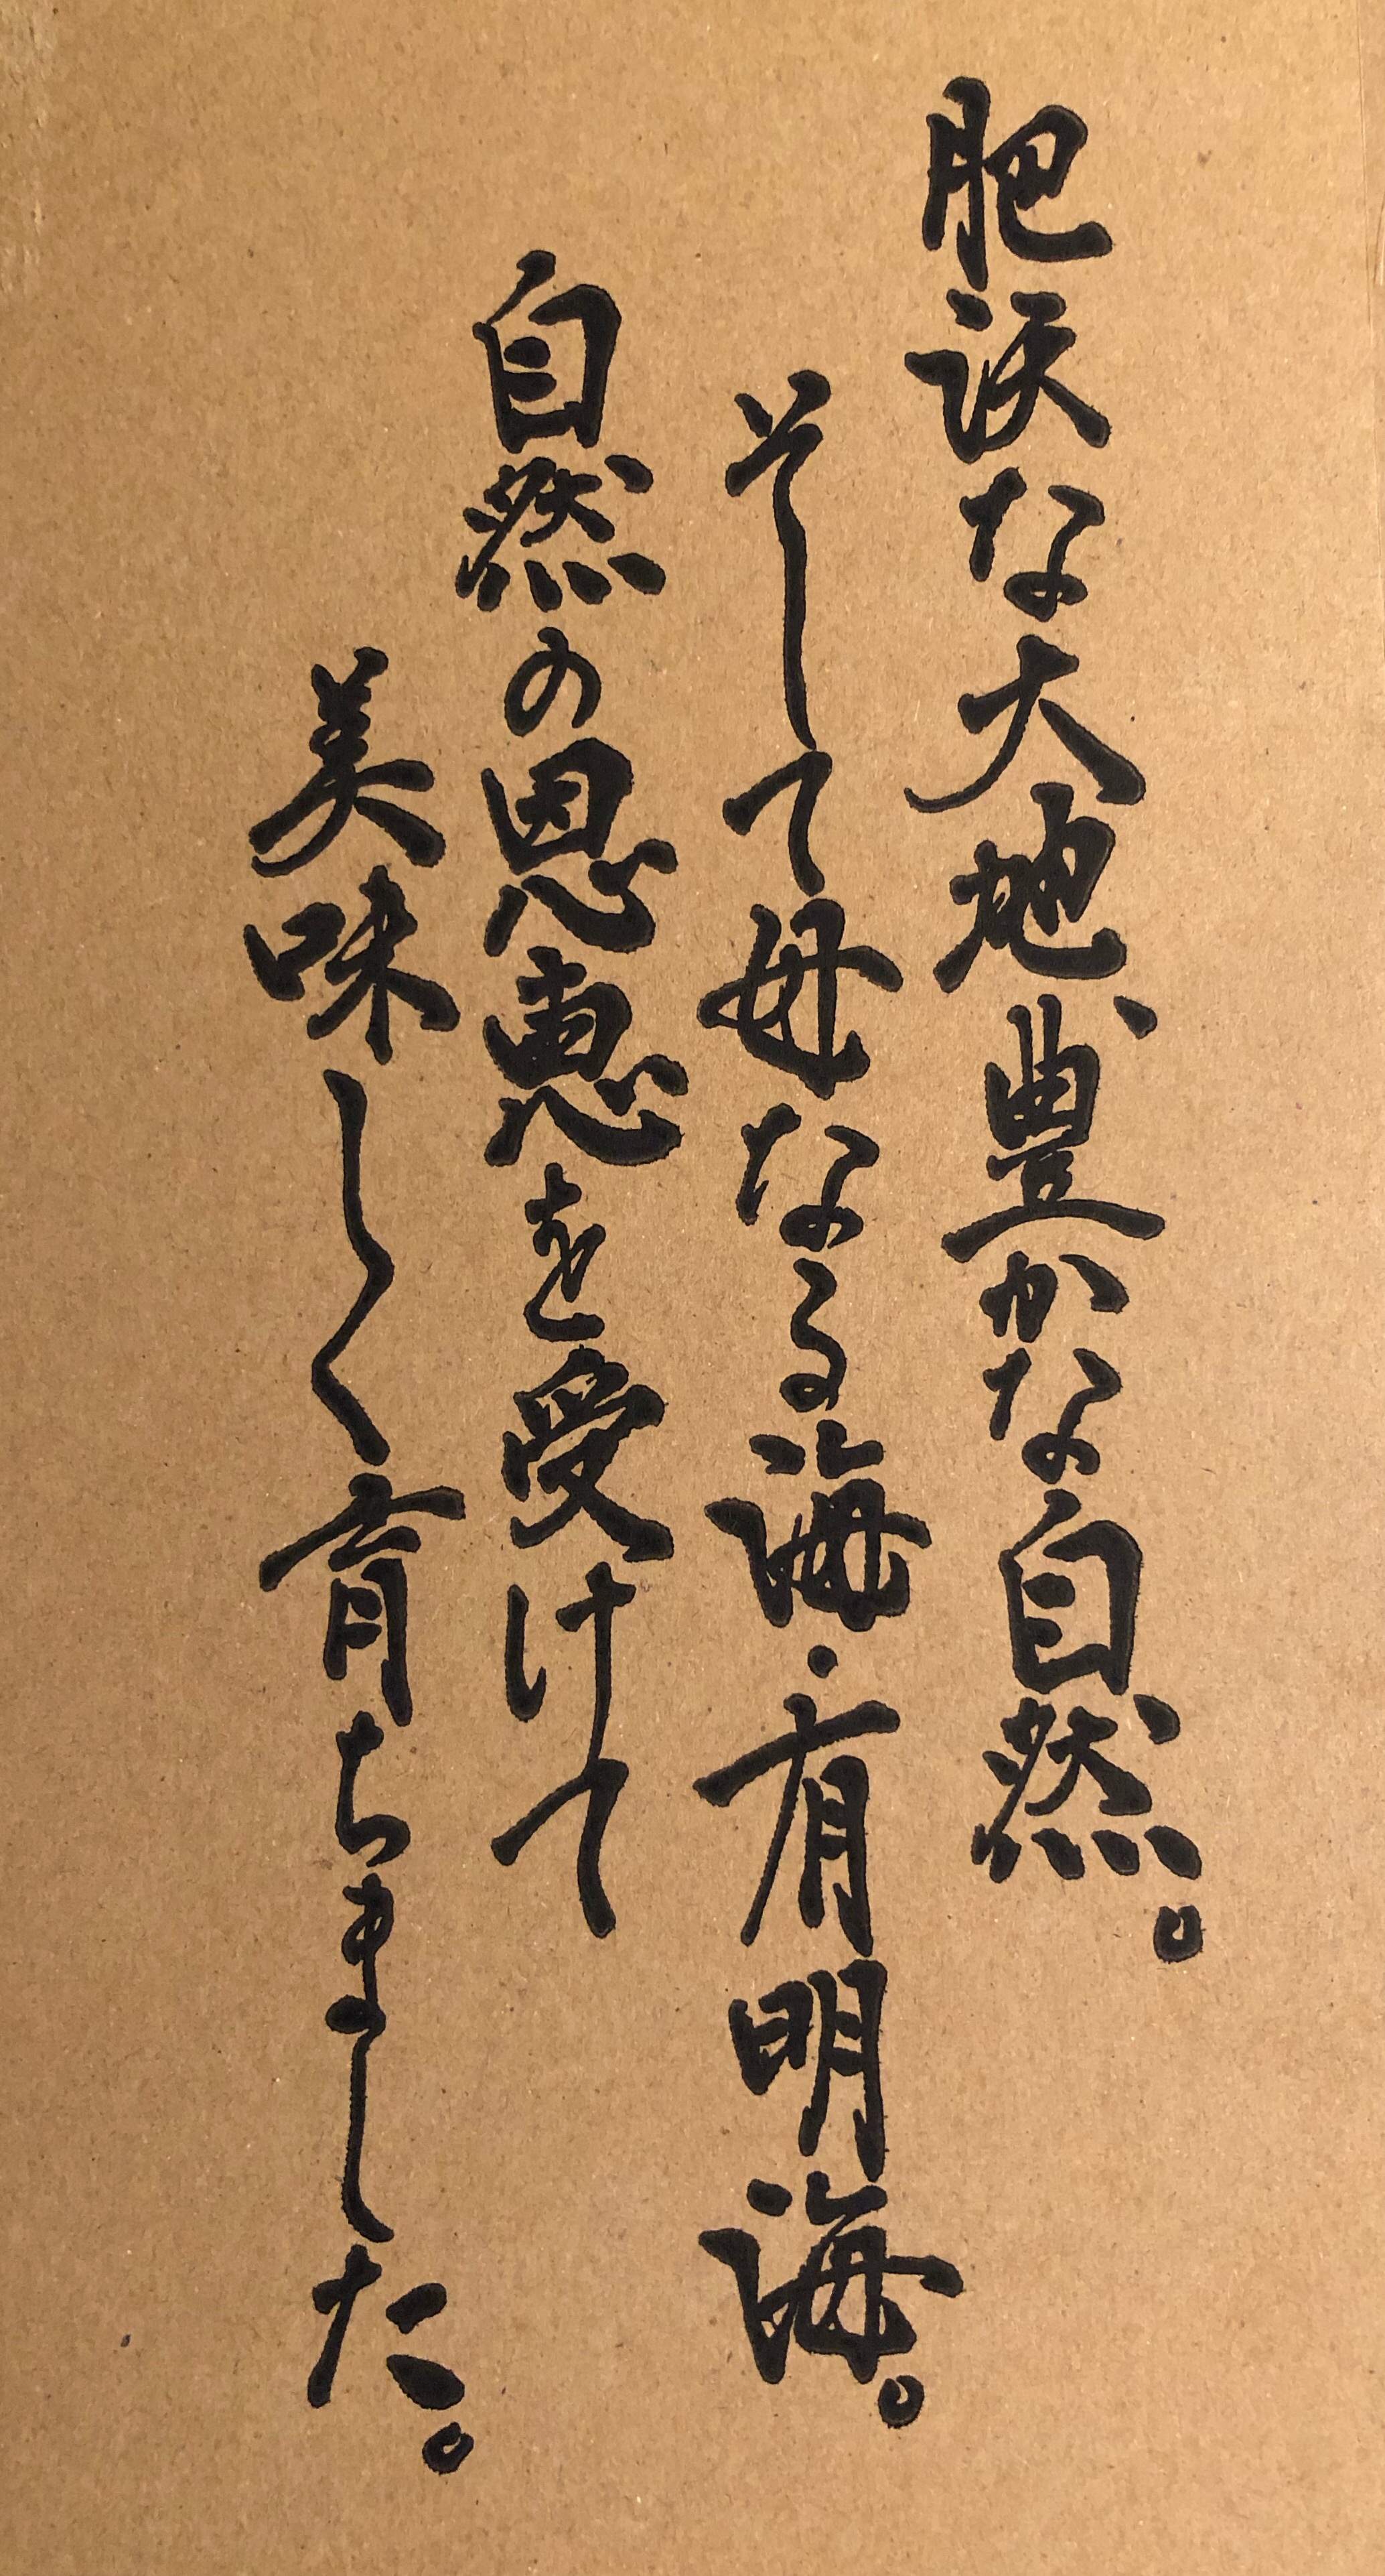 肥沃な大地、豊かな自然。
そして母なる海・有明海。
自然の恩恵を受けて
美味しく育ちました。